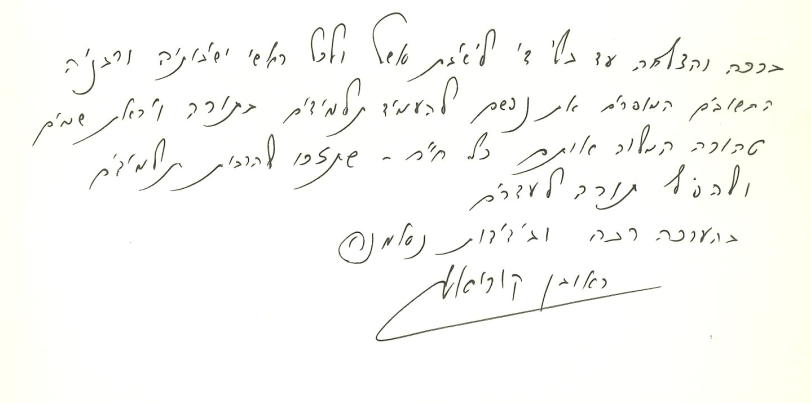 ברכה והצלחה עד בלי די לישיבת אשל ולכל ראשי ישיבותיה ורבניה
החשובים המוסרים את נפשם להעמיד תלמידים בתורה ויראת שמים
טהורה המלוה אותם כל חייהם - שתזכו להרבות תלמידים
ולהנחיל תורה לעדרים
בהערכה רבה ובידידות נאמנה
ראובן